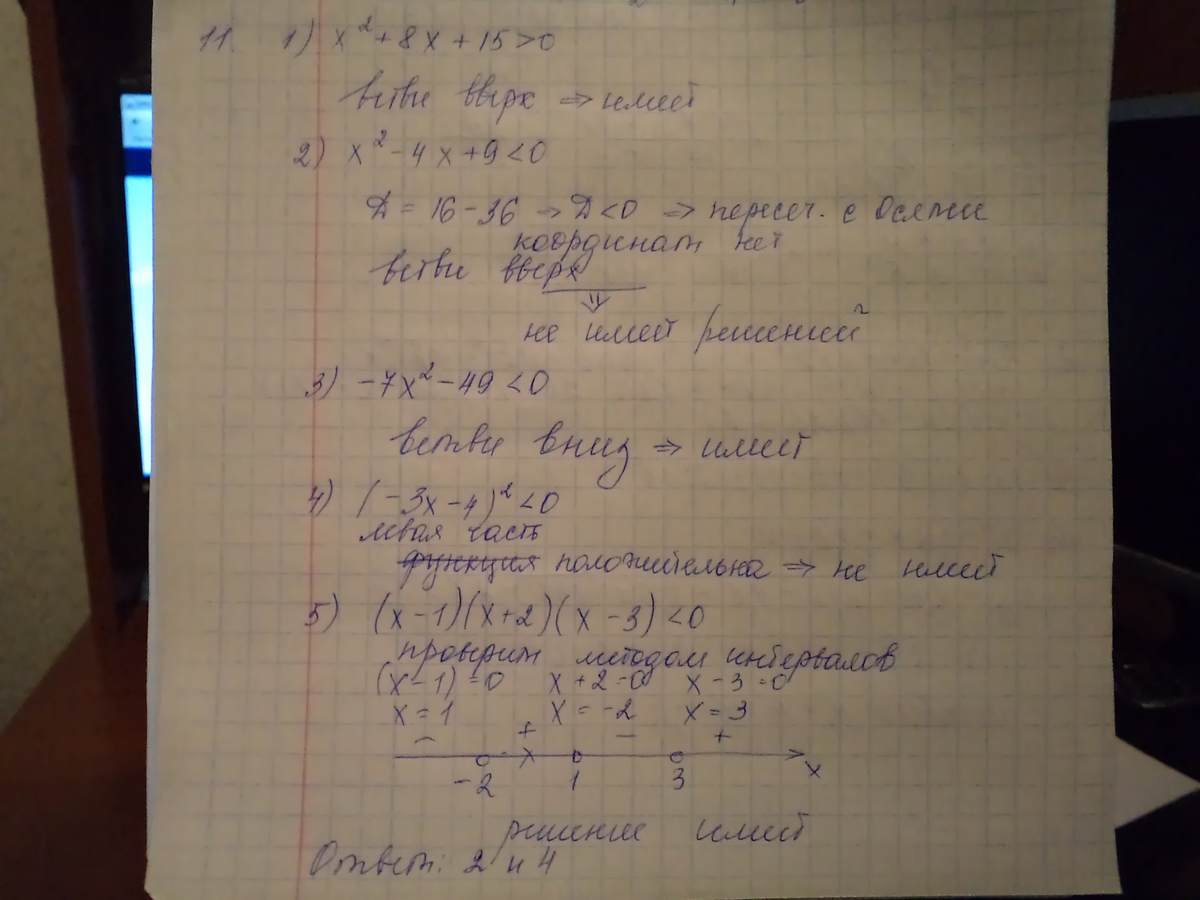 11. 1) x² + 8x + 15 > 0
ветви вверх ⇒ имеет
2) x² - 4x + 9 < 0
Д = 16 - 36 ⇒ Д < 0 ⇒ пересеч. с осями
координат нет
ветви вверх
⇓
не имеет решений
3) -7x² - 49 < 0
ветви вниз ⇒ имеет
4) (-3x - 4)² < 0
левая часть
функция положительна ⇒ не имеет
5) (x - 1)(x + 2)(x - 3) < 0
проверим методом интервалов
(x - 1) = 0 x + 2 = 0 x - 3 = 0
x = 1 x = -2 x = 3
- + - +
-2 1 3 x
решение имеет
Ответ: 2 и 4